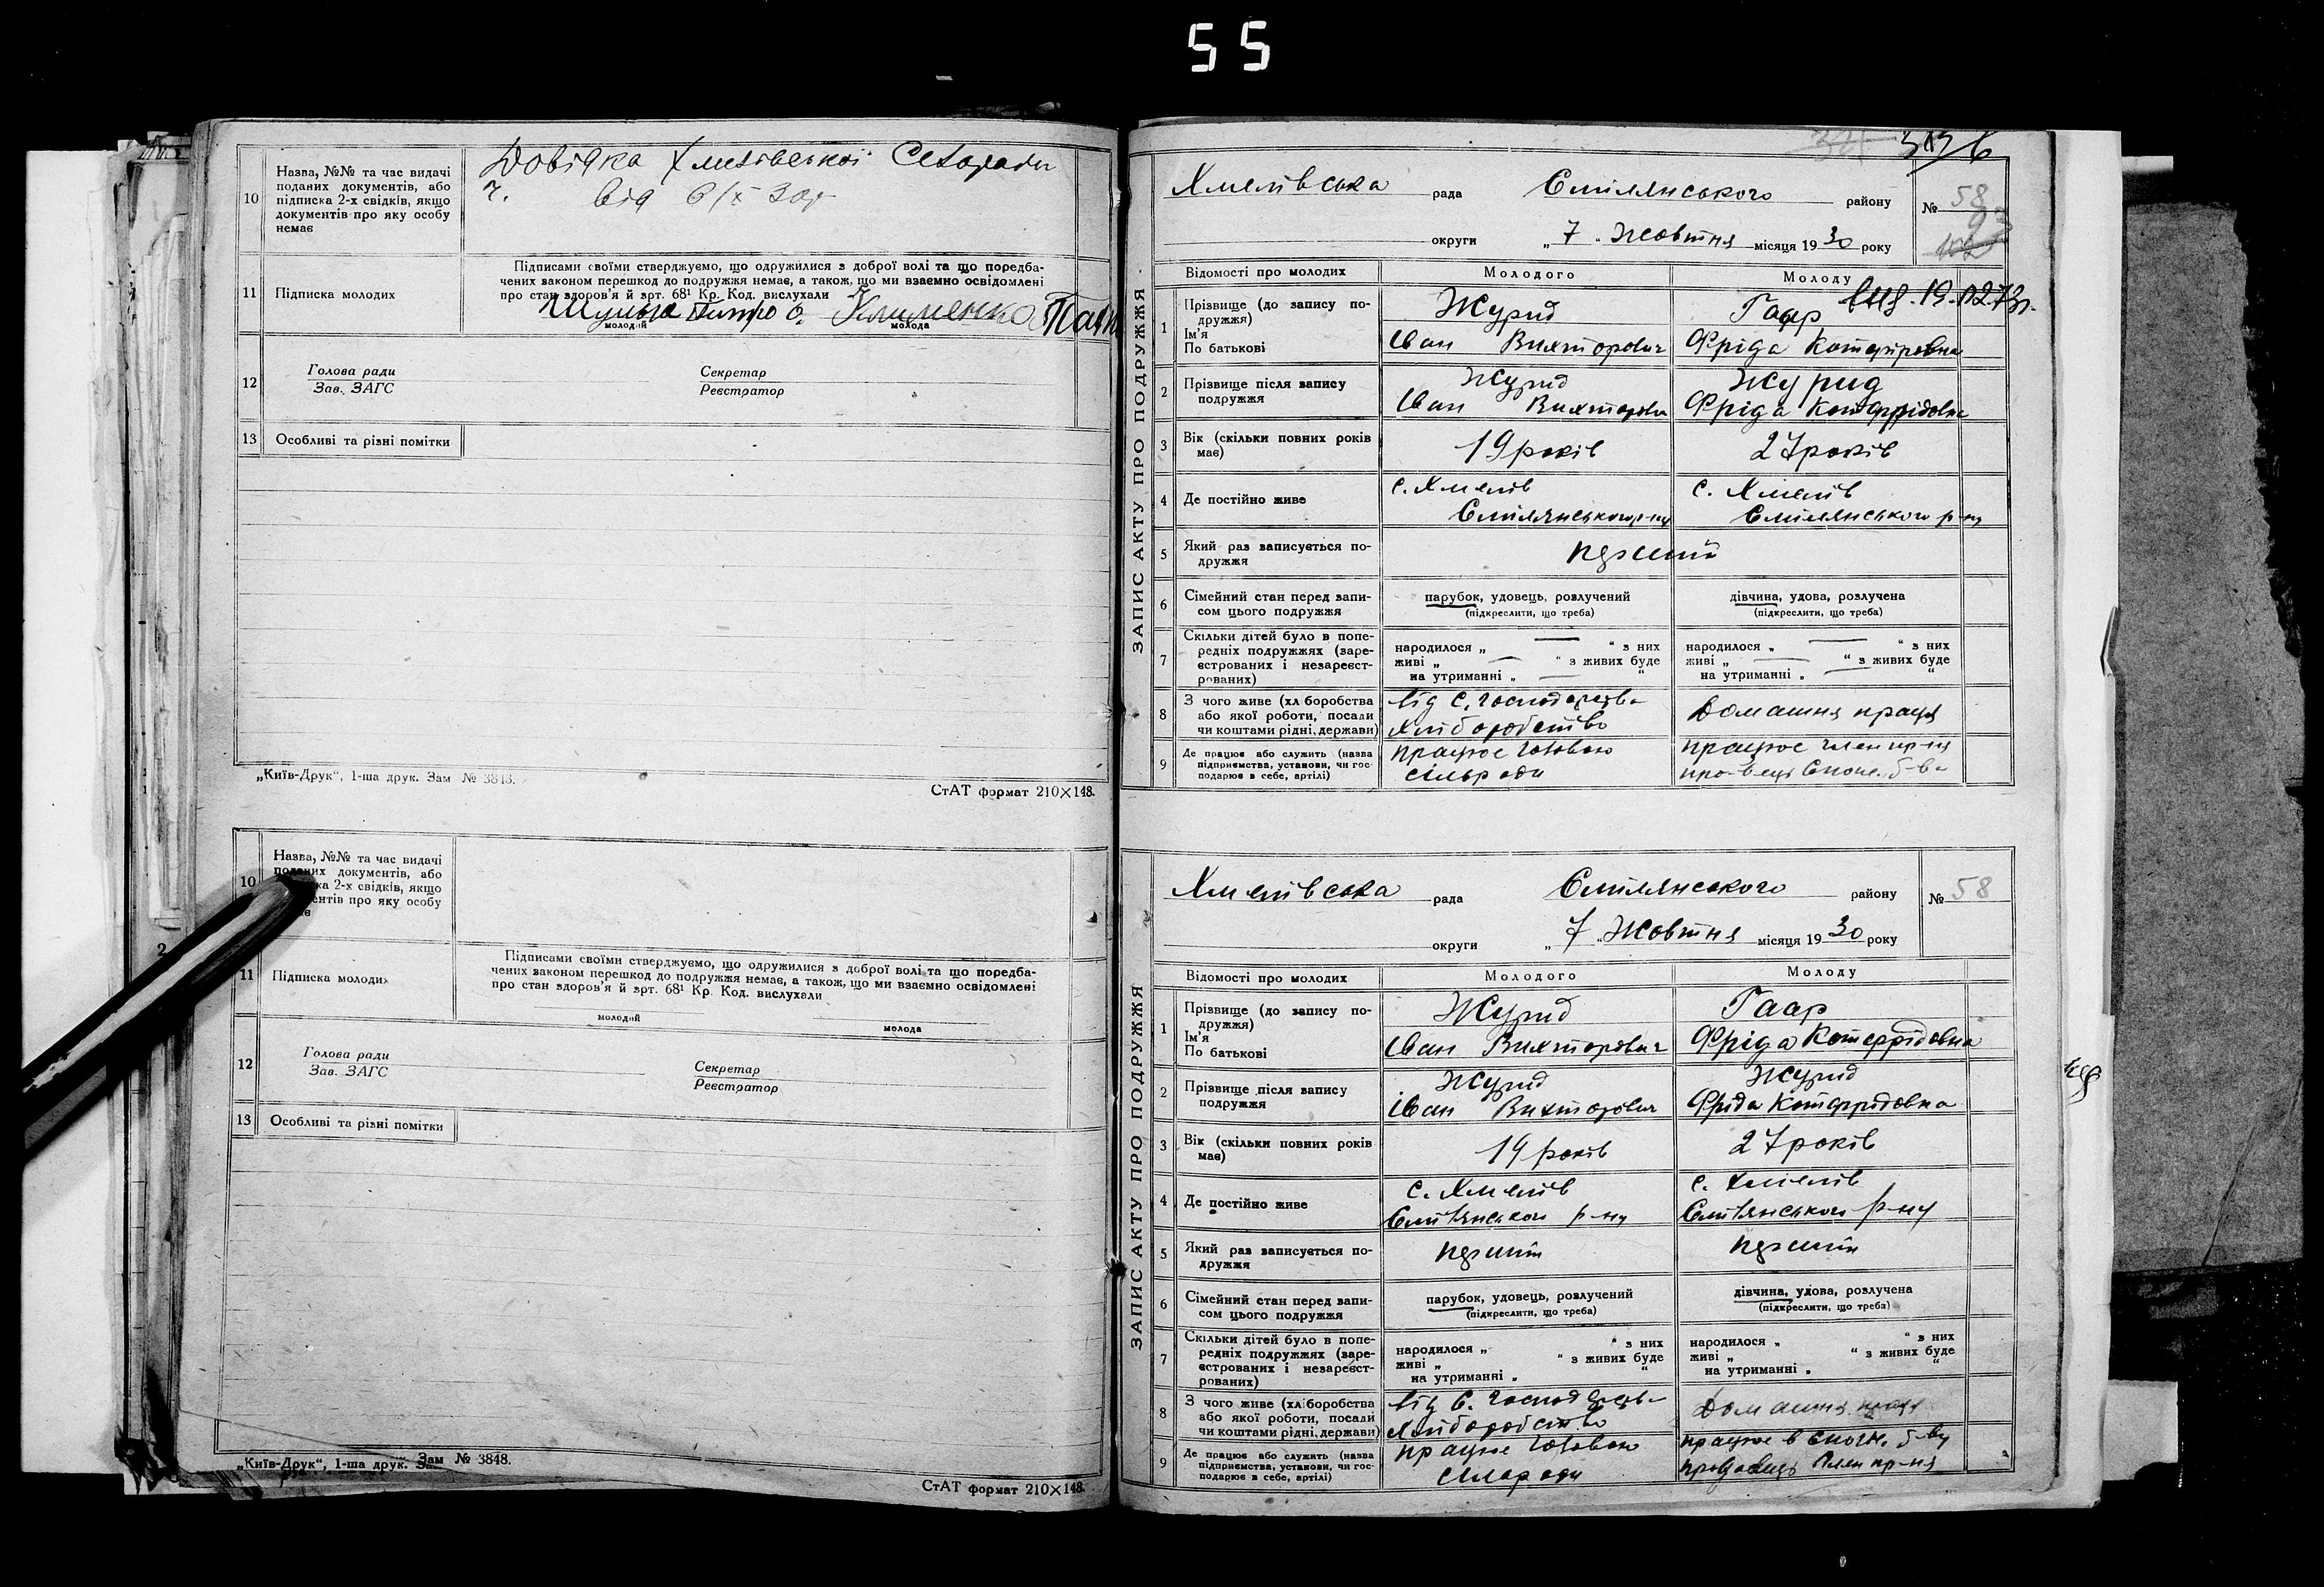 55
10
Назва, №№ та час видачі
поданих документів, або
підписка 2-х свідків, якщо
документів про яку особу
немає
Довідка Хмелівської Сельради
від 6/X 30р
11
Підписка молодих
Підписами своїми стверджуємо, що одружилися з доброї волі та що передба-
чених законом перешкод до подружжя немає, а також, що ми взаємно освідомлені
про стан здоров'я й арт. 68¹ Кр. Код. вислухали
Шульга Петро О. Клименко
молодий
молода
12
Голова ради
Зав. ЗАГС
Секретар
Реєстратор
13
Особливі та різні помітки
„Київ-Друк“, 1-ша друк. Зам № 3843.
СтАТ формат 210×148.
10
Назва, №№ та час видачі
поданих документів, або
ка 2-х свідків, якщо
ентів про яку особу
11
Підписка молодих
Підписами своїми стверджуємо, що одружилися з доброї волі та що передба-
чених законом перешкод до подружжя немає, а також, що ми взаємно освідомлені
про стан здоров'я й арт. 68¹ Кр. Код. вислухали
молодий
молода
12
Голова ради
Зав. ЗАГС
Секретар
Реєстратор
13
Особливі та різні помітки
„Київ-Друк“, 1-ша друк. Зам № 3848.
СтАТ формат 210×148.
ЗАПИС АКТУ ПРО ПОДРУЖЖЯ
Хмелівська рада Смілянського району
№ 58
округи „ 7 “ Жовтня місяця 1930 року
Відомості про молодих
Молодого
Молоду
1
Прізвище (до запису по-
дружжя)
Ім'я
По батькові
Журид
Іван Вихторович
Гаар
Фріда
2
Прізвище після запису
подружжя
Журид
Іван
Журид
Фріда
3
Вік (скільки повних років
має)
19 років
27 років
4
Де постійно живе
с. Хмелів
Смілянського р-ну
с. Хмелів
Смілянського р-ну
5
Який раз записується по-
дружжя
перший
6
Сімейний стан перед запи-
сом цього подружжя
парубок, удовець, розлучений
(підкреслити, що треба)
дівчина, удова, розлучена
(підкреслити, що треба)
7
Скільки дітей було в попе-
редніх подружжях (заре-
єстрованих і незареєст-
рованих)
народилося „ “ з них
живі „ “ з живих буде
на утриманні „ “
народилося „ “ з них
живі „ “ з живих буде
на утриманні „ “
8
З чого живе (хліборобства
або якої роботи, посади
чи коштами рідні, держави)
від с. господарства
хліборобство
Домашня праця
9
Де працює або служить (назва
підприємства, установи, чи гос-
подарює в себе, артілі)
працює головою
сільради
працює
ЗАПИС АКТУ ПРО ПОДРУЖЖЯ
Хмелівська рада Смілянського району
№ 58
округи „ 7 “ Жовтня місяця 1930 року
Відомості про молодих
Молодого
Молоду
1
Прізвище (до запису по-
дружжя)
Ім'я
По батькові
Журид
Іван Вихторович
Гаар
Фріда Котефрідовна
2
Прізвище після запису
подружжя
Журид
Іван Вихторович
Журид
Фріда Котефрідовна
3
Вік (скільки повних років
має)
19 років
27 років
4
Де постійно живе
с. Хмелів
Смілянського р-ну
с. Хмелів
Смілянського р-ну
5
Який раз записується по-
дружжя
перший
перший
6
Сімейний стан перед запи-
сом цього подружжя
парубок, удовець, розлучений
(підкреслити, що треба)
дівчина, удова, розлучена
(підкреслити, що треба)
7
Скільки дітей було в попе-
редніх подружжях (заре-
єстрованих і незареєст-
рованих)
народилося „ “ з них
живі „ “ з живих буде
на утриманні „ “
народилося „ “ з них
живі „ “ з живих буде
на утриманні „ “
8
З чого живе (хліборобства
або якої роботи, посади
чи коштами рідні, держави)
від с. господарства
хліборобство
Домашня праця
9
Де працює або служить (назва
підприємства, установи, чи гос-
подарює в себе, артілі)
працює головою
сілради
працює в спож. т-ву
продавець член пр-ки